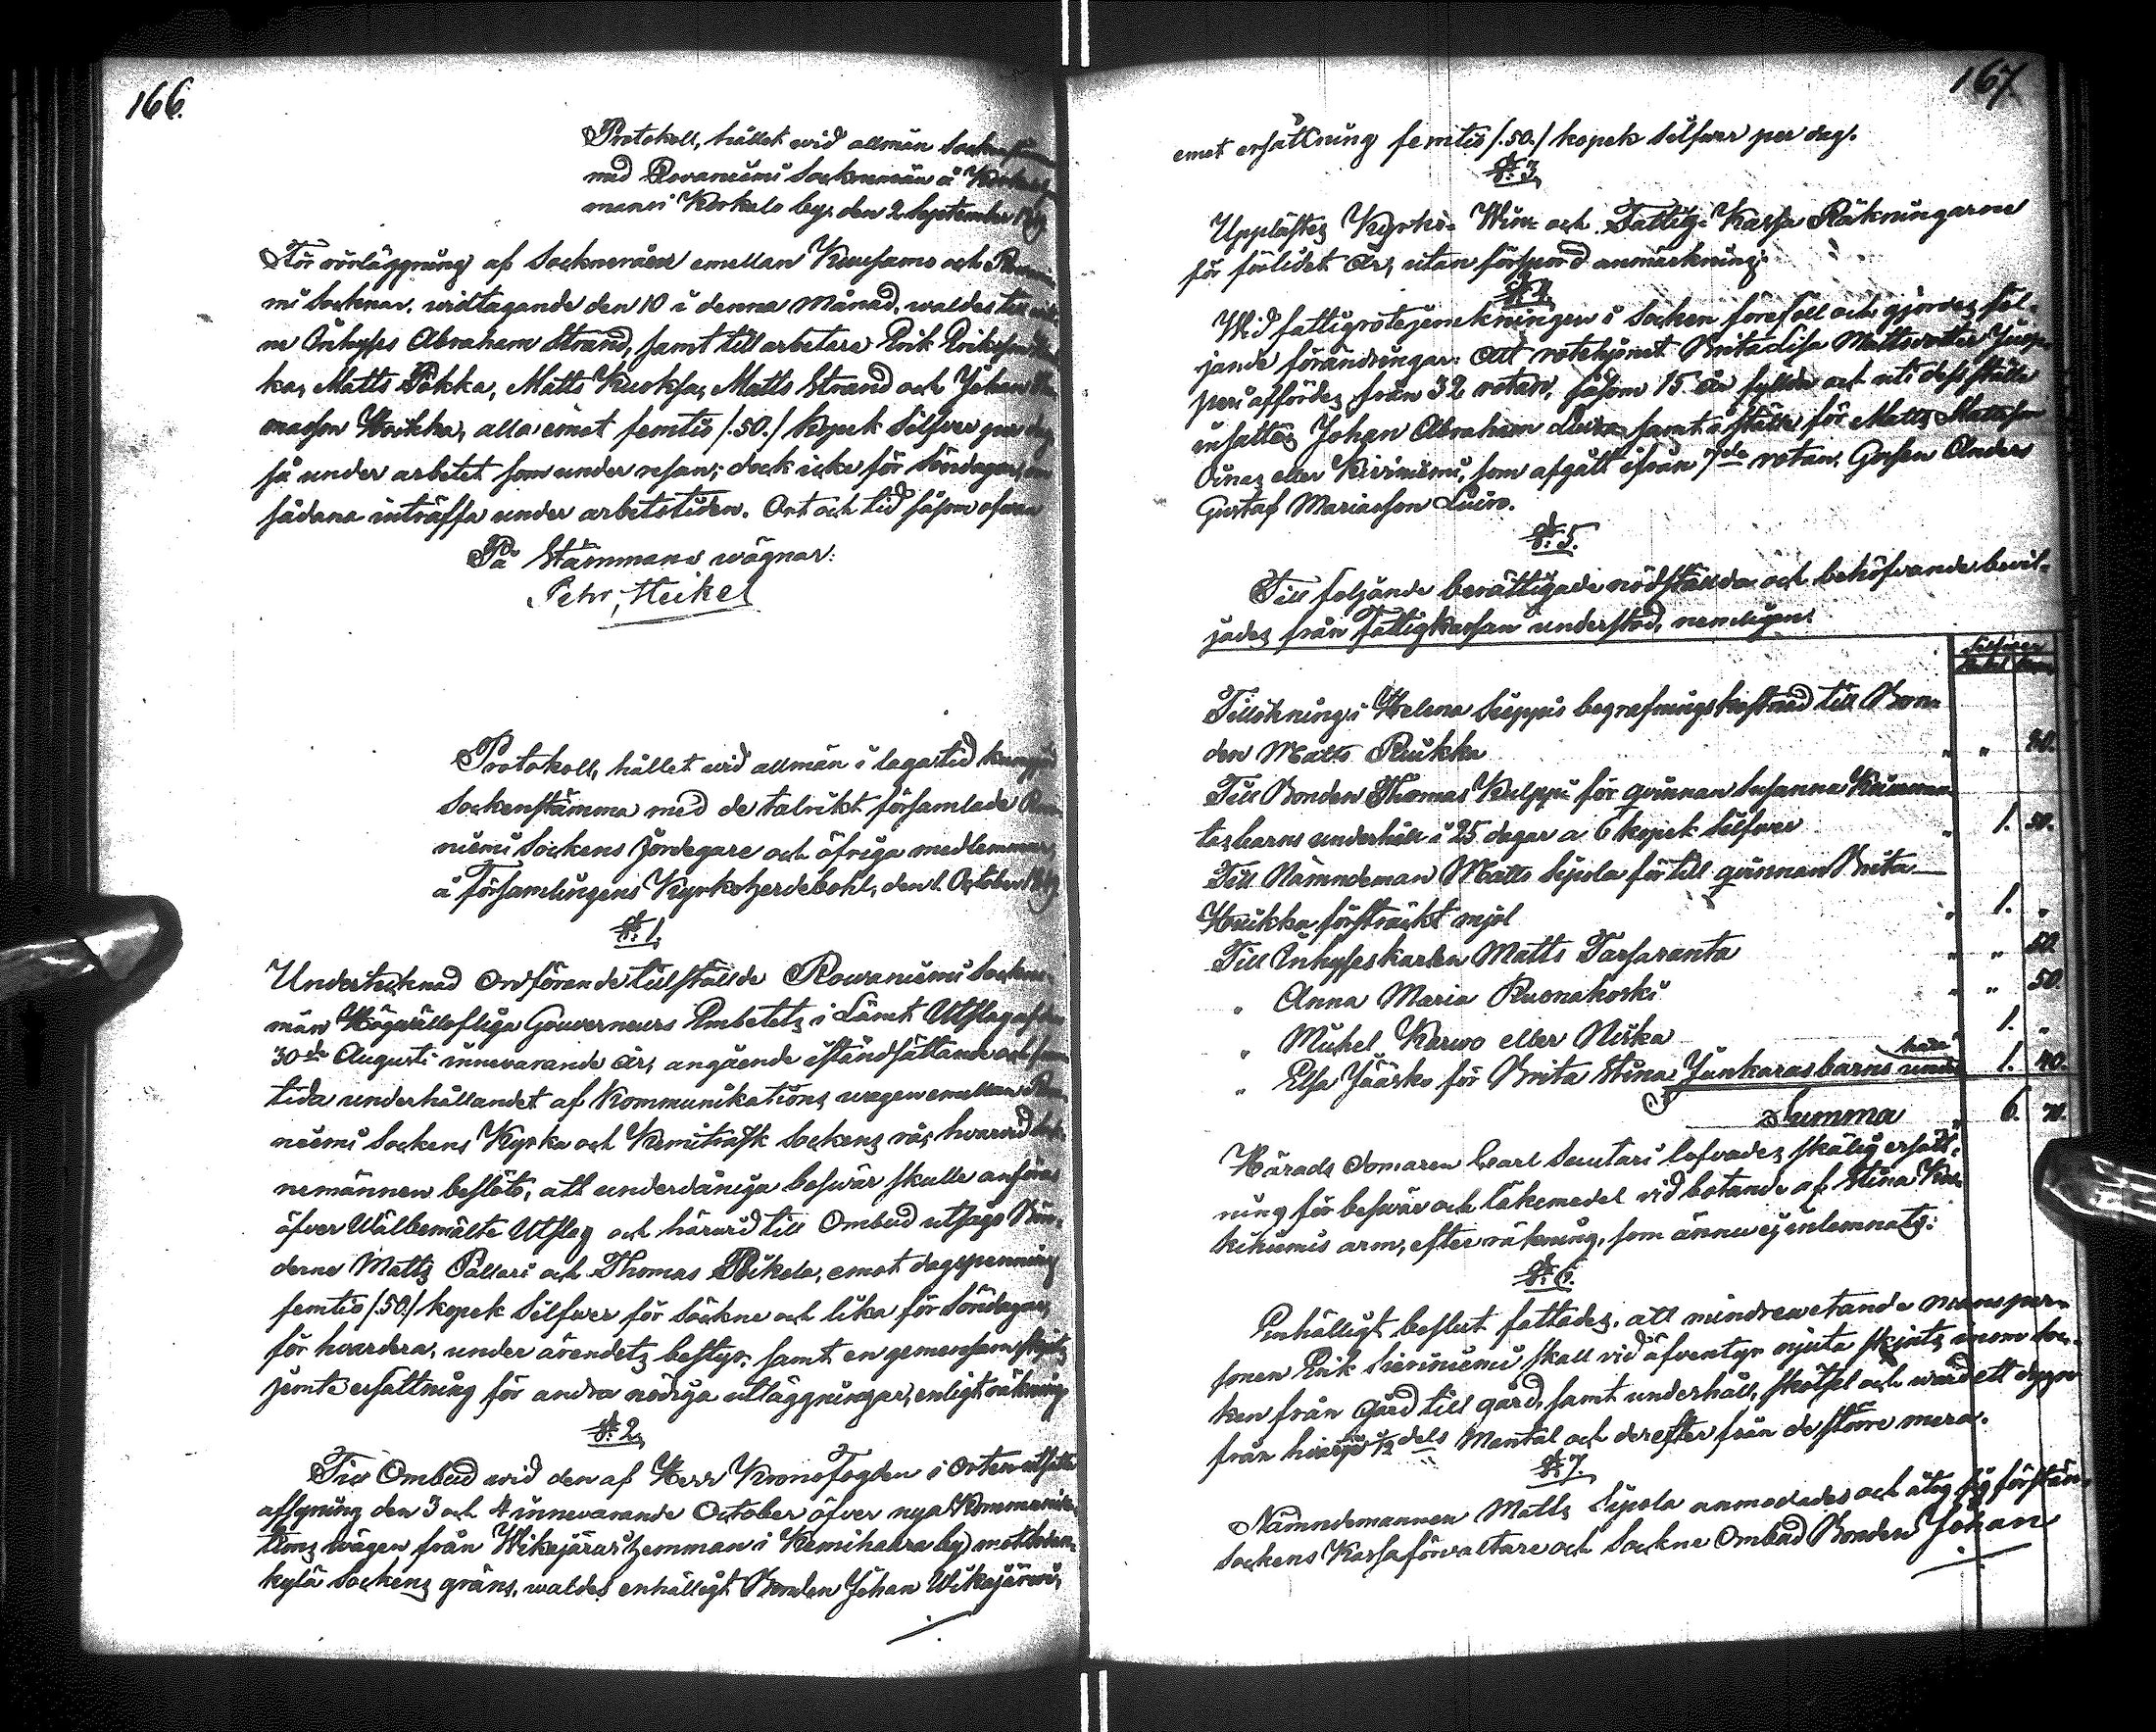 166.
Protokoll, hållet wid allmän Sockenstämma
med Rovaniemi Sockenemän å
manni Korkalo by, den 2 September
För rörläggning af Sockneråen emellan Kuusamo och Rovanie-
mi Socknar, widtagande den 10 i denna månad, waldes till
ne Inhyses Abraham Strand, samt till arbetare Erik Eriksson
ka, Matts Pokka, Matts Kuoksa, Matts Strand och Johan
masson Hoikka, alla emot femtio /.50./ Kopek Silfver per dag
så under arbetet som under resan; dock icke för Söndagar, om
sådana inträffa under arbetstiden. Ort och tid såsom ofvan
På Stämmans wägnar:
Pehr Heikel
Protokoll, hållet wid allmän i laga tid kungjord
Sockenstämma med de talrikt församlade Rova-
niemi Sockens Jordegare och öfriga medlemmar,
å Församlingens Kyrkoherdebohl, den 1 October
§: 1.
Undertecknad Ordförande tillställde Rowaniemi Sockne-
män Högvällofliga Gouverneurs Embetets i Länet Utslag af den
30de Augusti innevarande år, angående iståndsättande och fram-
tida underhållandet af Kommunikations wägen emellan Rova-
niemi Sockens Kyrka och Kemiträsk Sockens rå; hvarvid Sock-
nemännen beslöto, att underdåniga beswär skulle anföras
öfver Wälbemälte Utslag och härwid till Ombud utsågs Bön-
derne Matts Pallari och Thomas Pikola, emot dagspenning
femtio /.50./ kopek Silfver för Söckne och lika för Söndagar,
för hvardera, under ärendets bestyr, samt en gemensam skjuts
jemte ersättning för andra nödiga utläggningar, enligt räkning
§: 2.
Till Ombud wid den af Herr Kronofogden i Orten utsatte
afsyning den 3 och 4 innevarande October öfver nya Kommunika-
tions wägen från Wikajärvi hemman i Kemihaara by mot Sodan-
kylä Sockens gräns, waldes enhälligt Bonden Johan Wikajärvi,
167.
emot ersättning femtio /.50./ kopek Silfver per dag.
§: 3.
Upplästes Kyrko- Win- och Fattig- Kassa Räkningarne
för förlidet År, utan försport anmärkning.
§: 4.
Wid fattigrotejemkningen i Socken föreföll och gjordes föl-
jande förändringar: Att rotehjonet Brita Lisa Mattsdotter
afföres från 32 rotan, såsom 15 år fyllda och uti dess ställe
insattes Johan Abraham Luiro samt i stället för Matts Mattsson
Oinas eller Kiviniemi, som afgått ifrån 7de rotan, Gossen Anders
Gustaf Mariasson Luiro.
§: 5.
Till följande berättigade nödställda och behöfvande bevil-
jades från Fattigkassan understöd, nemligen:
Silfver
Rubel Kop.
Tillökning i Helena Seippis begrafningskostnad till Bon-
den Matts Ruikka " " 80.
Till Bonden Thomas Kulppi för qvinnan Susanna
tas barns underhåll i 25 dagar a 6 kopek Silfver " 1. 50.
Till Nämndeman Matts Sipola för till qvinnan Brita
Hoikka försträckt mjöl " 1. "
Till Inhyseskarlen Matts Tarsaranta " " 50.
" Anna Maria Ruonakoski " " 50.
" Michel Karwo eller Niska " 1. "
" Elsa Jääskö för Brita Stina Junkaras barns under-
håll 1. 40.
Summa " 6. 70.
Härads domaren Carl Sautari lofvades skälig ersätt-
ning för beswär och läkemedel vid botande af Stina
kiniemis arm, efter räkning, som ännu ej inlemnats.
§: 6.
Enhälligt beslut fattades, att mindrewetande manspers-
sonen Erik Sieriniemi skall vid äfventyr njuta skjuts inom Soc-
ken från gård till gård, samt underhåll, skötsel och ward ett dygn
från hvarje 1/12 dels Mantal och derefter från de större mera.
§: 7.
Nämndemannen Matts Sipola anmodades och åtog sig förstän-
Sockens Kassaförvaltare och Sockne Ombud Bonden Johan